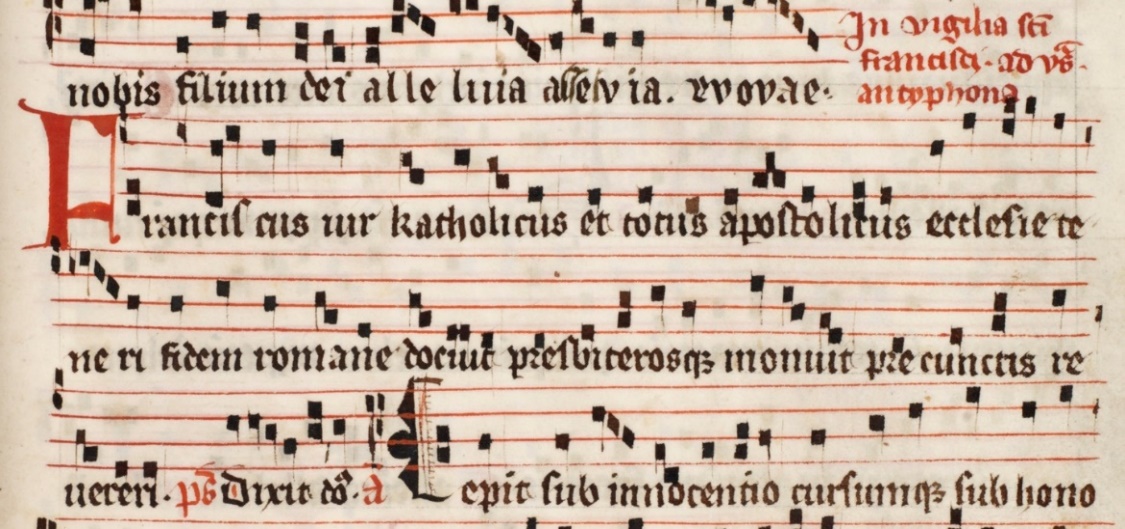 nobis filium dei alle luia alleluia. evovae.
In vigilia sci
francisci. ad vs.
antyphona
Francis cus uir katholicus et totus apostolicus ecclesie te
ne ri fidem romane docuit presbiterosqz monuit pre cunctis re
uereri. ps Dixit do. a Cepit sub innocentio cursumqz sub hono